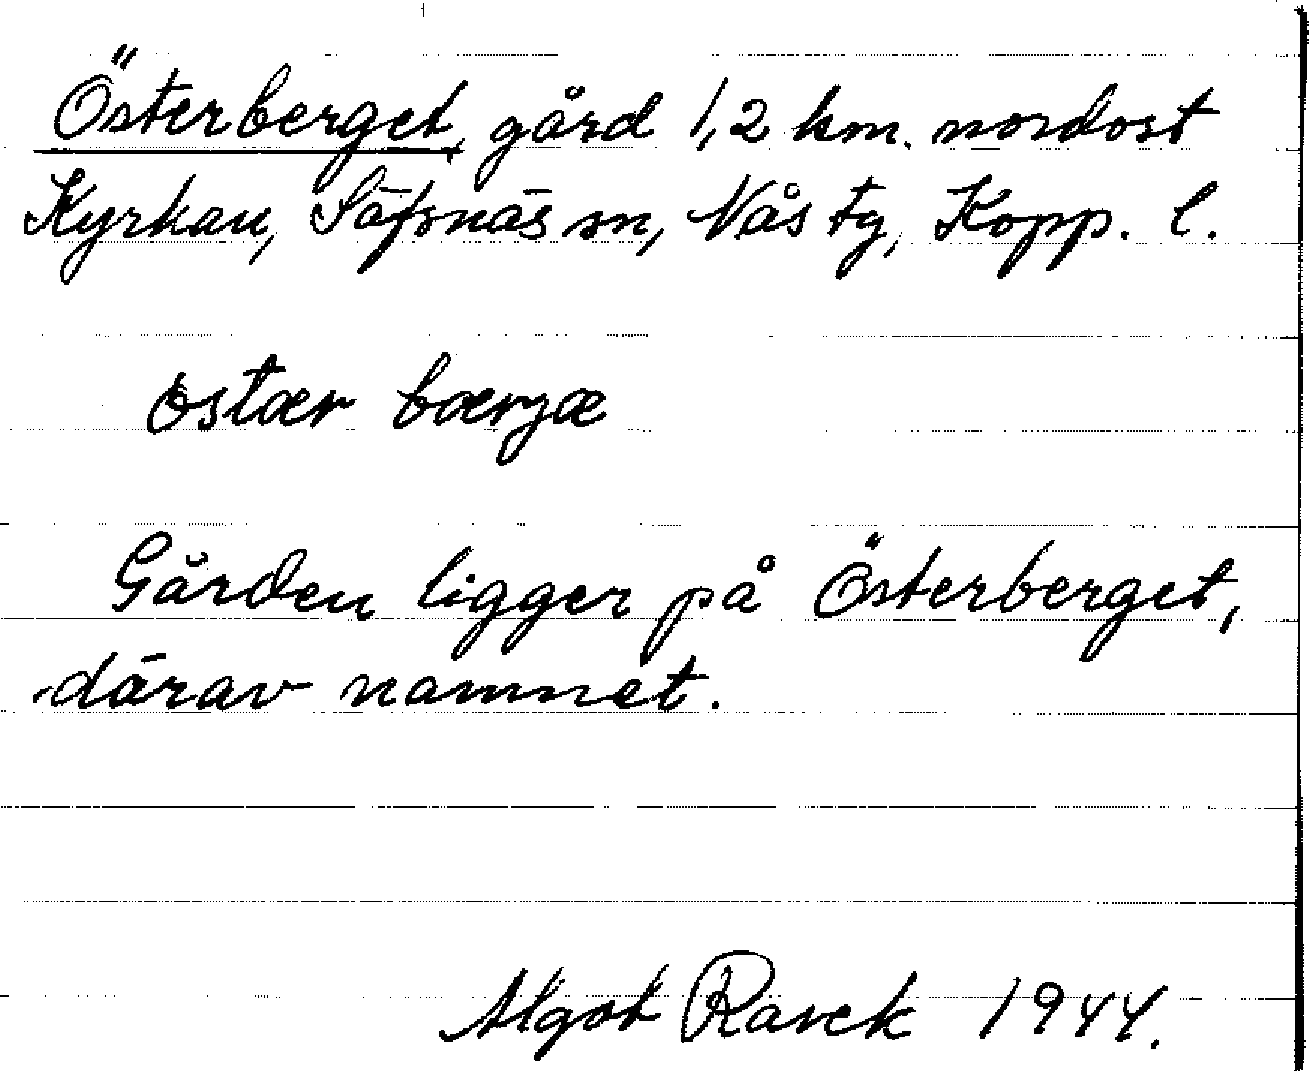 Österberget, gård 1,2 km. nordost
Kyrkan, Säfsnäs sn, Nås tg, Kopp. l.
östær bærjæ
Gården ligger på Österberget,
därav namnet.
Algot 1944.